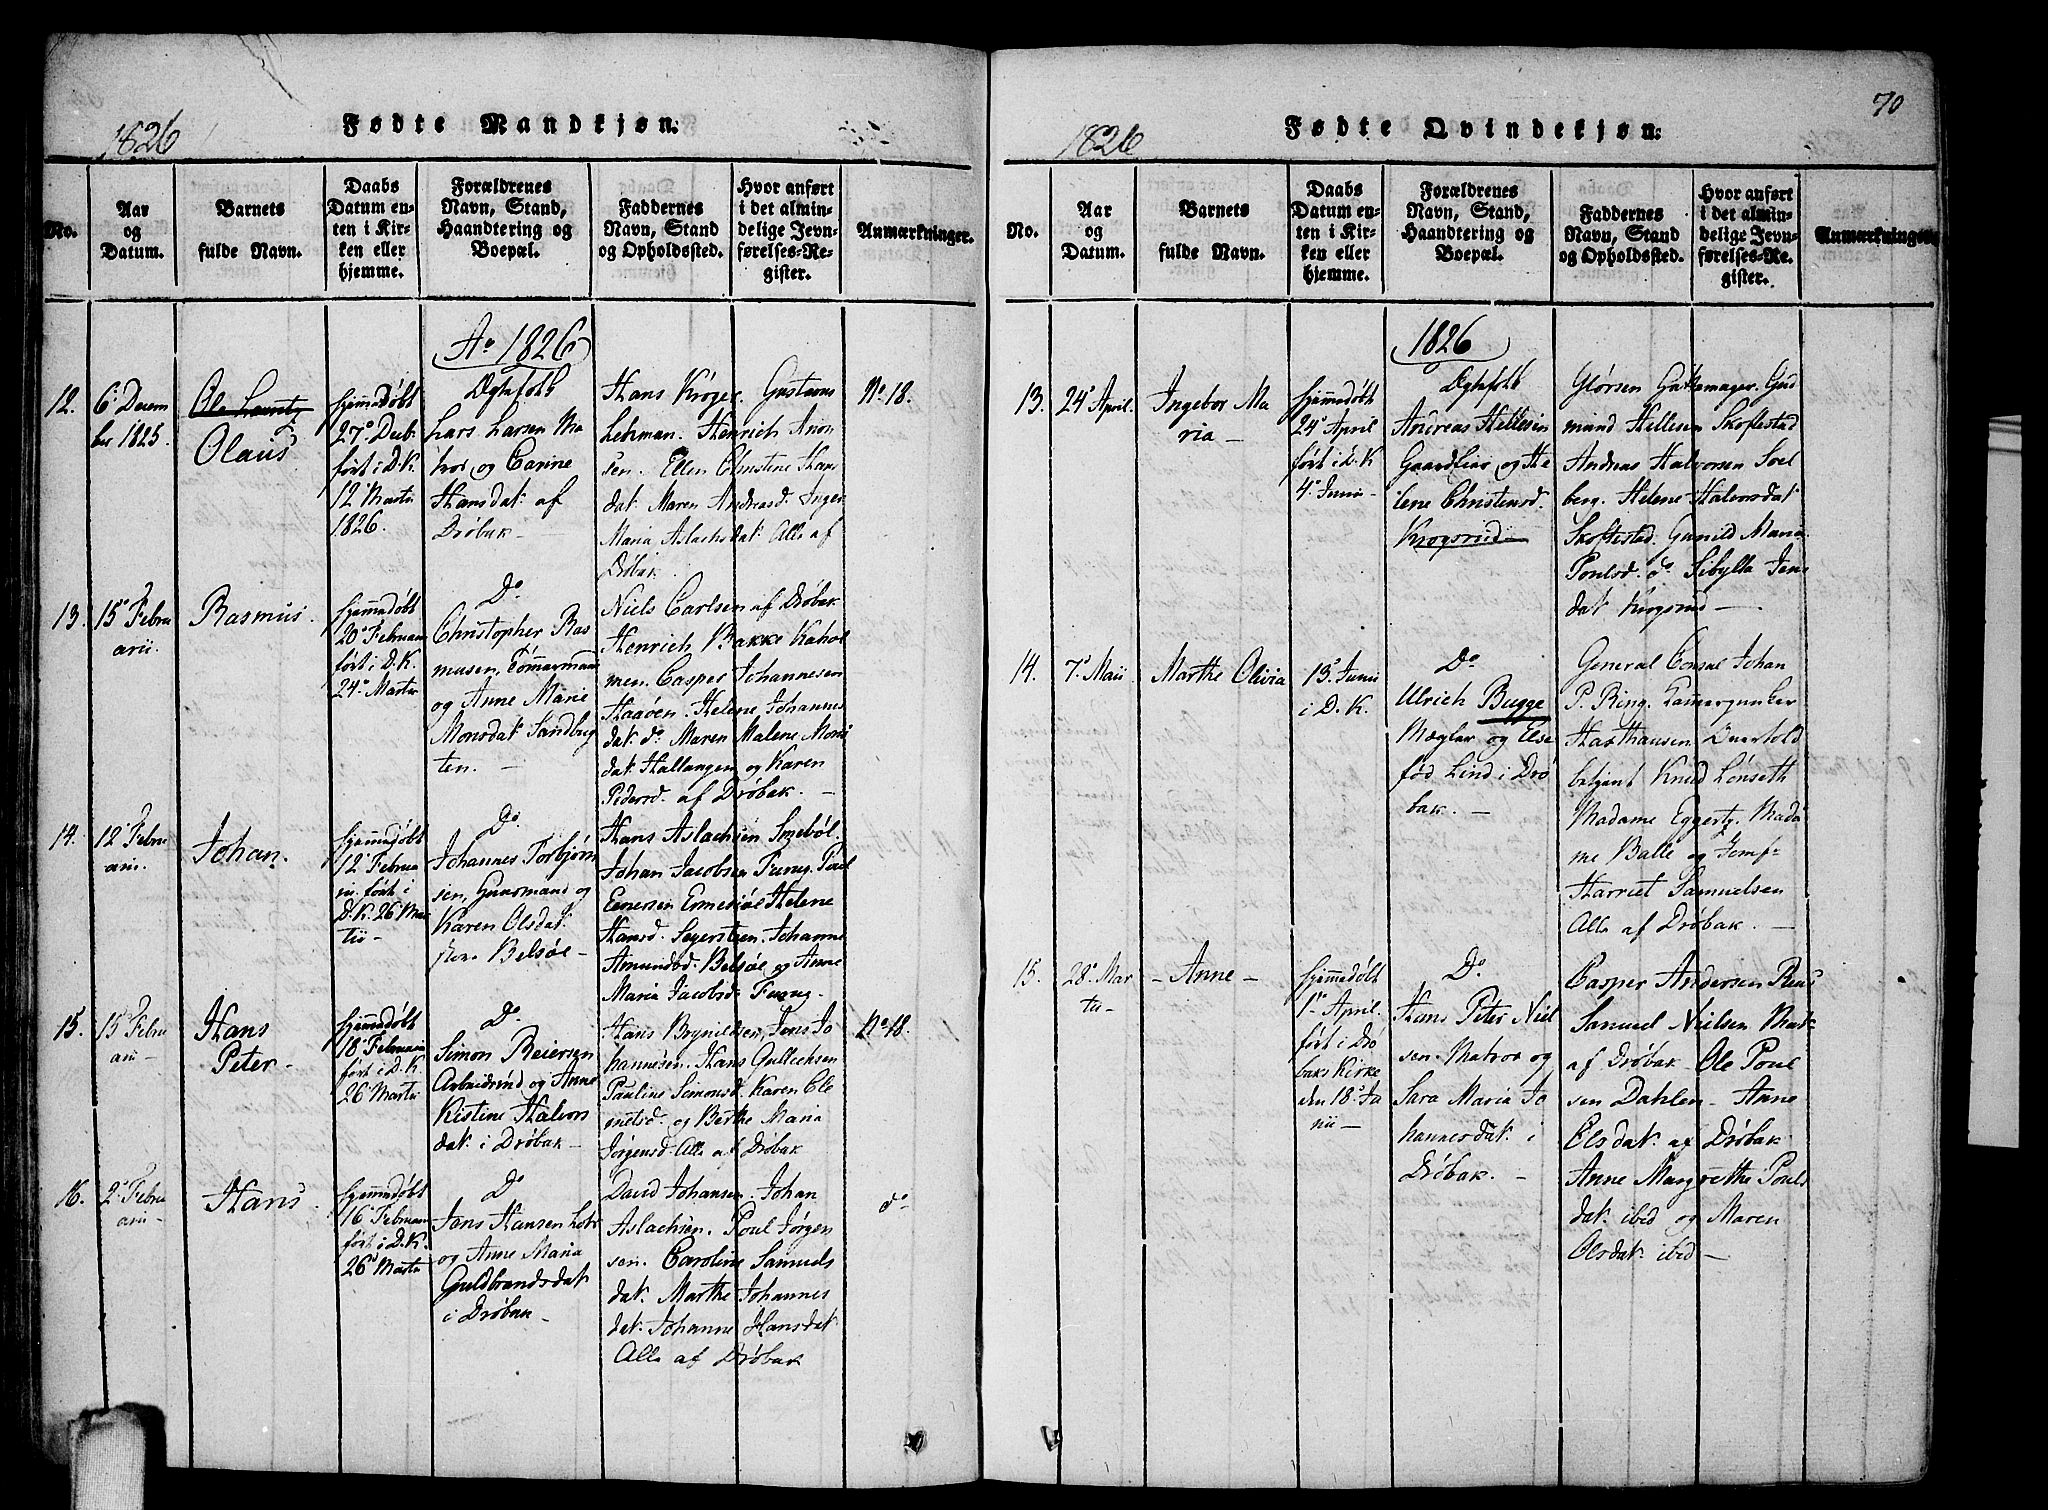 1826
Fødte Mandkjøn.
No.
Aar
og
Datum.
Barnets
fulde Navn.
Daabs
Datum en-
ten i Kir-
ken eller
hjemme.
Forældrenes
Navn, Stand,
Haandtering og
Boepæl.
Faddernes
Navn, Stand
og Opholdssted.
Hvor anført
i det almin-
delige Jevn-
førelses-Re-
gister.
Anmærkninger.
Ao 1826
12.
6 Decem
ber 1825.
Ole Lauritz
Olaus
hjemmedøbt
27o Decb.
ført i D.K.
12 Martii
1826.
Ægtefolk
Lars Larsen Ma
tros og Carine
Hansdat. af
Drøbak
Hans Krøger. Gustavus
Lehman. Henrich Aron
sen. Ellen Christine Hans
dat. Maren Andreasd. Inger
Maria Aslachsdat. Alle af
Drøbak
No 18.
13.
15o Febru
arii.
Rasmus.
hjemmedøbt
20o Februarii
ført i D.K.
24o Martii
Do
Christopher Ras
musen, Tømmermand
og Anne Marie
Monsdat. Sandbug
ten.
Niels Carlsen af Drøbak
Henrich Bakke Kahol
men. Casper Johannesen
Haaøen. Helene Johannes
dat. do Maren Malene Mons
dat. Hallangen og Karen
Pedersd. af Drøbak.
14.
12 Febru
arii.
Johan.
hjemmedøbt
12 Februa
rii. ført i
D.K. 26 Mar
tii
Do
Johannes Torbjørn
sen, Huusmand og
Karen Olsdat.
Belsøe
Hans Aslachsen Smebøl.
Johan Jacobsen Furug. Poul
Enersen Ermesiøe Helene
Hansd. Segersteen. Johanne
Amundsd. Belsøe og Anne
Maria Jacobsd. Furug.
15.
15 Febru
arii
Hans
Peter
hjemmedøbt
18o Februarii
ført i D.K.
26 Martii
Do
Simon Reiersen
Arbeidsmd og Anne
Kistine Halvors
dat. i Drøbak
Hans Brynildsen, Jens Jo
hannesen. Hans Gullichsen
Pauline Simonsd. Karen Cle
metsd. og Berthe Maria
Jørgensd. Alle af Drøbak
No 18.
16.
2o Febru
arii
Hans.
hjemmedøbt
16o Februarii
ført i D.K.
26o Martii
Do
Jens Hansen Lods
og Anne Maria
Guldbrandsdat.
i Drøbak
David Johansen. Johan
Aslachsen. Poul Jørgen
sen. Caroline Samuels
dat. Marthe Johannes
dat. Johanne Hansdat.
Alle af Drøbak
do
70
1826
Fødte Qvindekjøn.
No.
Aar
og
Datum.
Barnets
fulde Navn.
Daabs
Datum en-
ten i Kir-
ken eller
hjemme.
Forældrenes
Navn, Stand,
Haandtering og
Boepæl.
Faddernes
Navn, Stand
og Opholdssted.
Hvor anført
i det almin-
delige Jevn-
førelses-Re-
gister.
Anmærkninger
1826
13.
24o April.
Ingebor Ma
ria
hjemmedøbt
24o April
ført i D.K
4o Junii
Ægtefolk
Andreas Hellesen
Gaardeier og He
lene Christensd.
Krogsrud
Gudmund Hellesen Skoftestad
Andreas Halvorsen Soel
berg. Helene Halvorsdat.
Skoftestad. Gunild Maria
Poulsd. do Sibylla Jens
dat. Krogsrud
14.
7o Maii
Marthe Olivia
13o Junii
i D.K.
Do
Ulrich Bugge
Mægler og Else
fød Lind i Drø
bak.
General Consul Johan
P. Ring. Kammerjunker
Haxthausen Overtold
betjent Knud Lønseth
Madame Eggertz. Mada
me Balle og Jomf.
Harriet Samuelsen
Alle af Drøbak.
15.
28o Mar
tii
Anne
hjemmedøbt
1o April.
ført i Drø
baks Kirke
den 18o Ju
nii
Do
Hans Peter Niel
sen. Matros og
Sara Maria Jo
hannesdat. i
Drøbak.
Casper Andersen Reus
Samuel Nielsen Mat.
af Drøbak Ole Poul
sen Dahlen Anne
Elsdat. af Drøbak
Anne Margrethe Pouls
dat. ibid og Maren
Olsdat. ibid